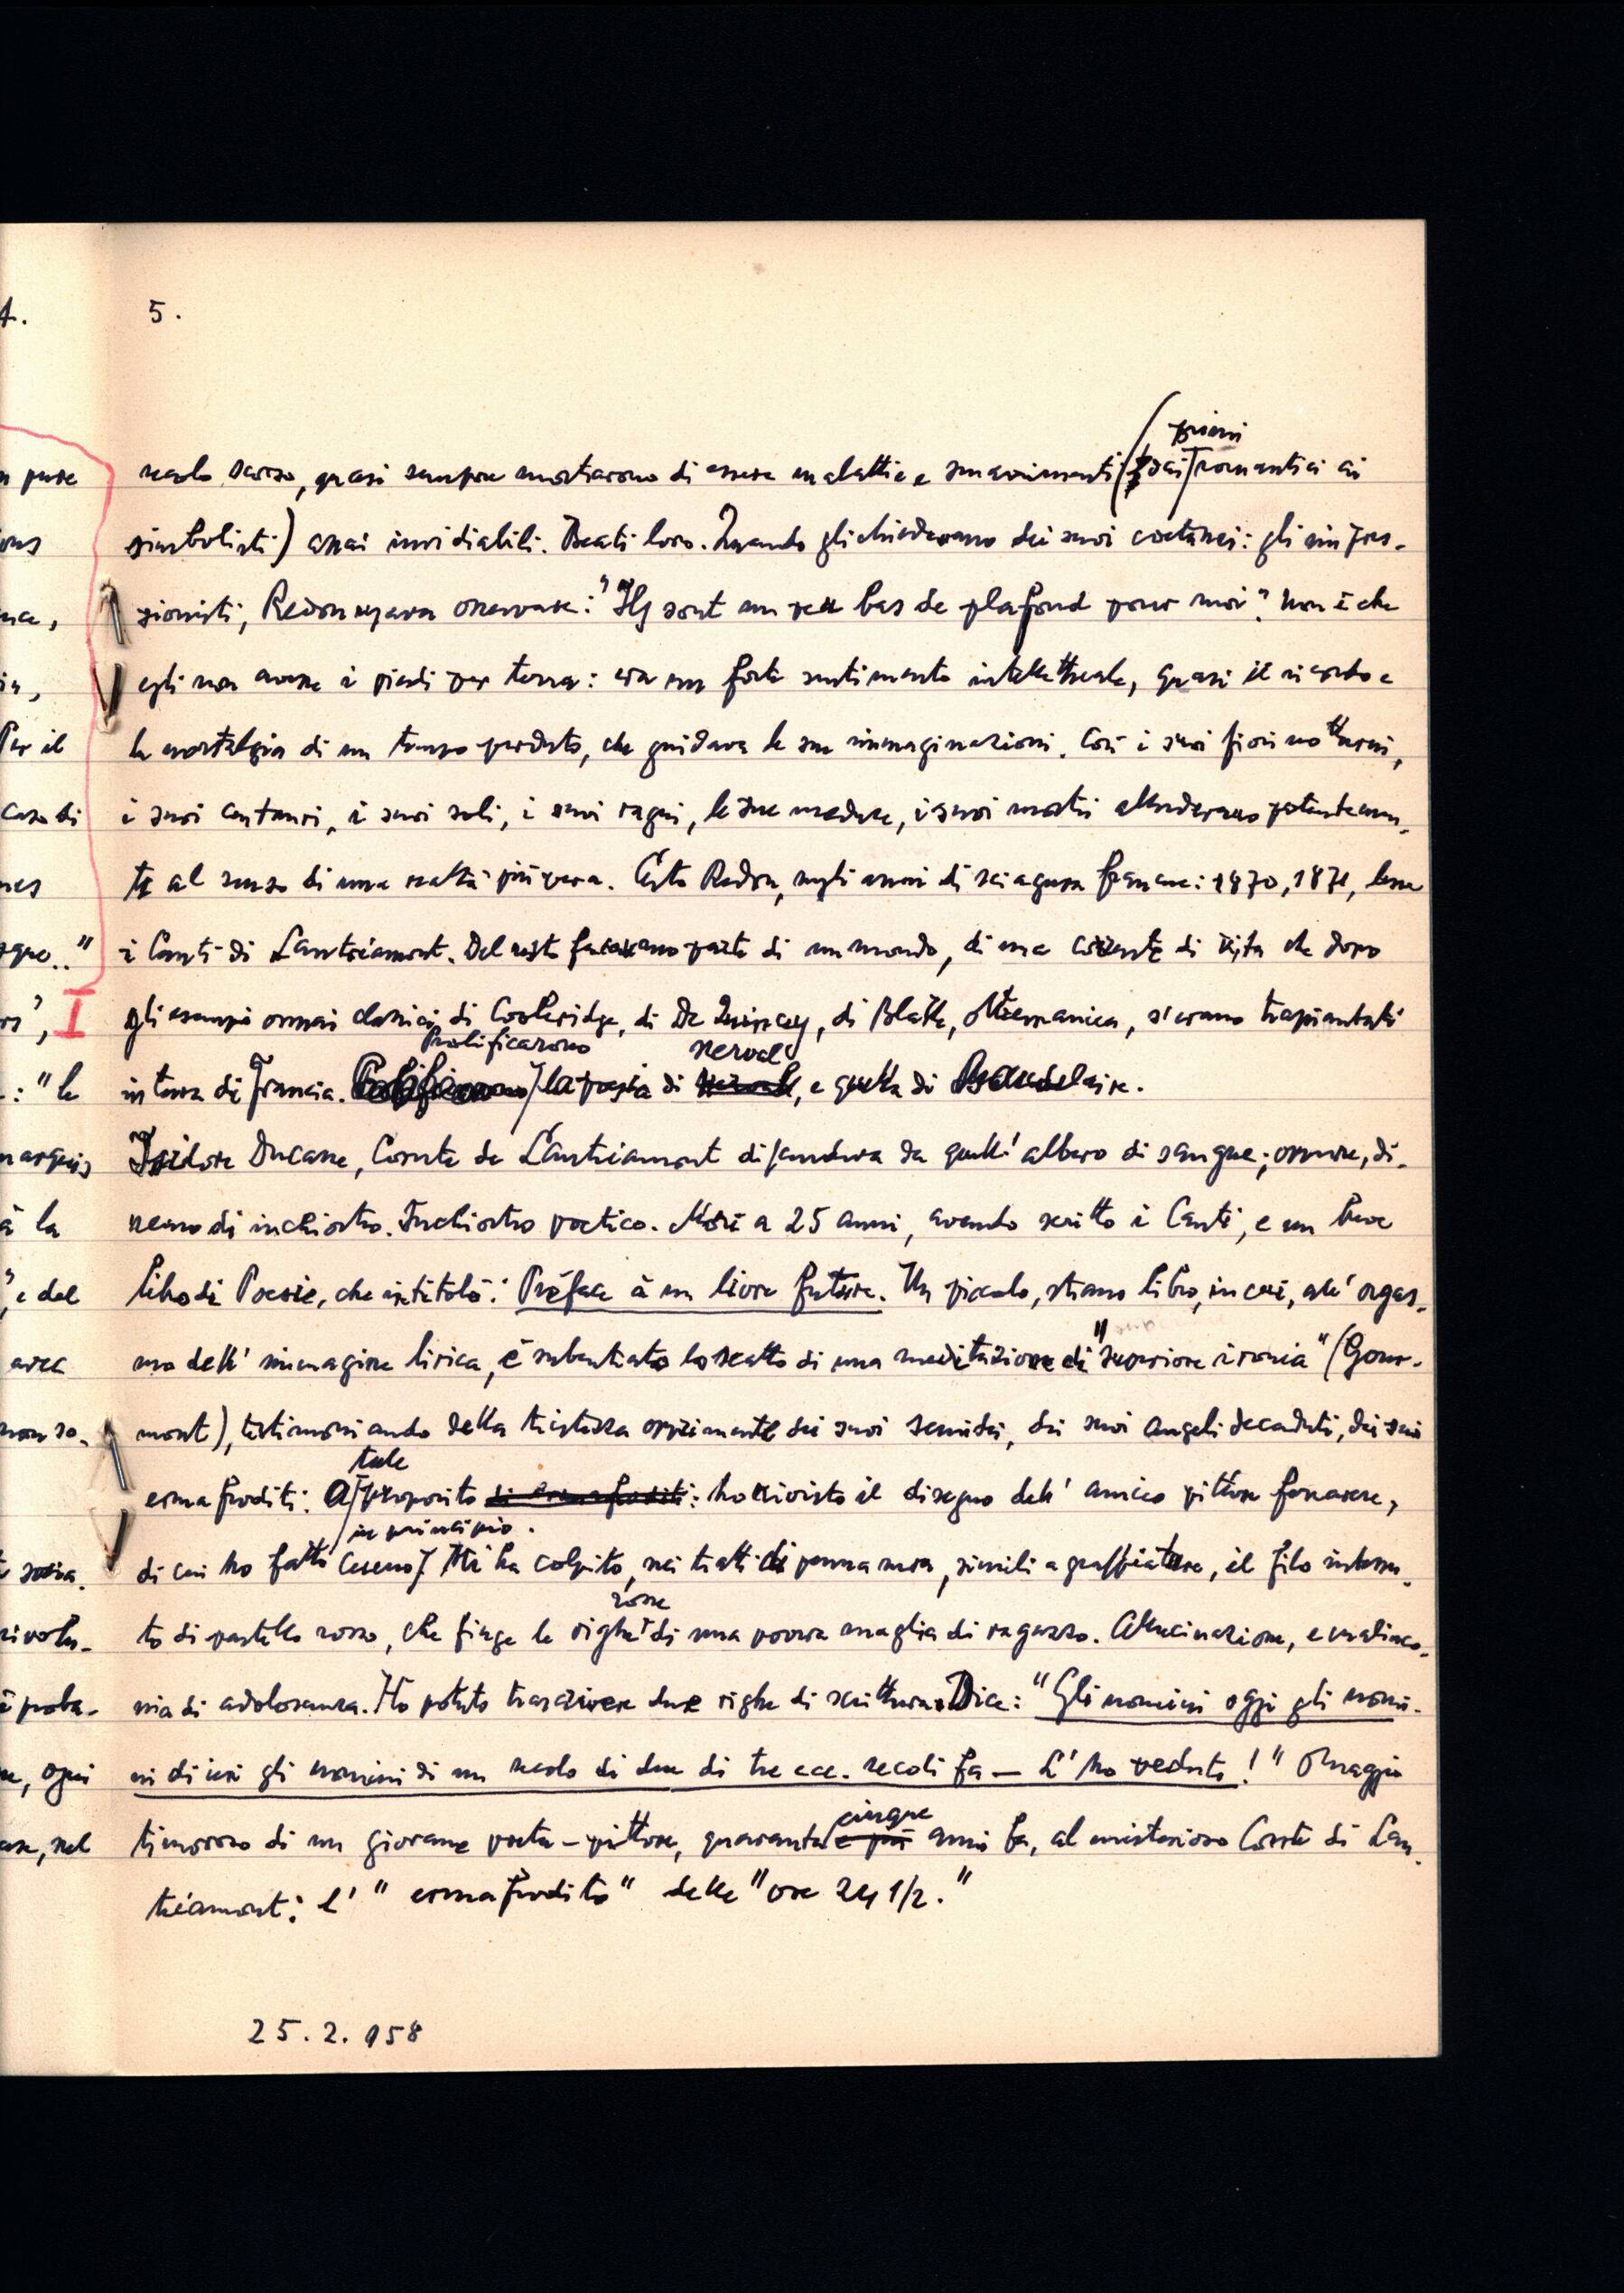 4.
5.
primi
secolo scorso, quasi sempre mostrarono di essere malattie e smarrimenti (dai romantici ai
simbolisti) assai invidiabili. Beati loro. Quando gli chiedevano dei suoi coetanei: gli impres-
sionisti, Redon usava osservare: "Ils sont un peu bas de plafond pour moi". Non è che
egli non avesse i piedi per terra: era un forte sentimento intellettuale, quasi il ricordo e
la nostalgia di un tempo perduto, che guidava le sue immaginazioni. Così i suoi fiori notturni,
i suoi centauri, i suoi soli, i suoi ragni, le sue meduse, i suoi mostri alludevano potentemen-
te al senso di una realtà più vera. Certo Redon, negli anni di sciagura francese: 1870, 1871, lesse
i Canti di Lautréamont. Del resto facevano parte di un mondo, di una corrente di vita che dopo
gli esempi ormai classici di Cooleridge, di De Quincey, di Blake, oltremanica, s'erano trapiantati
Prolificarono
nerval
in terra di Francia. la poesia di , e quella di Baudelaire.
Isidore Ducasse, Comte de Lautréamont discendeva da quell' albero di sangue; oppure, di-
remo di inchiostro. Inchiostro poetico. Morì a 25 anni, avendo scritto i Canti, e un breve
libro di Poesie, che intitolò: Préface à un livre future. Un piccolo, strano libro, in cui, all' orgas-
mo dell' immagine lirica, è subentrato lo scatto di una meditazione di "superiore ironia" (Gour-
mont), testimoniando della tristezza opprimente dei suoi semidei, dei suoi angeli decaduti, dei suoi
tale
ermafroditi. A proposito di ermafroditi: ho rivisto il disegno dell' amico pittore ,
in principio.
di cui ho fatto cenno Mi ha colpito, nei tratti di penna nera, simili a graffiature, il filo intessu-
rosse
to di pastello rosso, che finge le righe di una povera maglia di ragazzo. Allucinazione, e malinco-
nia di adolosenza. Ho potuto trascrivere due righe di scrittura. Dice: "Gli uomini oggi gli uomi-
ni di ieri gli uomini di un secolo di due di tre ecc. secoli fa — L'ho veduto!" Omaggio
cinque
timoroso di un giovane poeta-pittore, quaranta e più anni fa, al misterioso Conte di Lau-
tréamont: l' "ermafrodito" delle "ore 24 1/2."
25.2.958
n pure
Per il
caso di
I
: "le
marquis
à la
", e del
avec
non so-
rivolu-
è proba-
ogni
nel